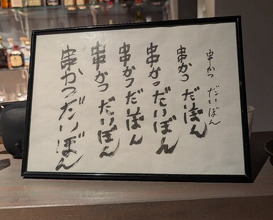 串かつ だいぼん
串かつ だいぼん
串かつ だいぼん
串かつ だいぼん
串かつ だいぼん
串かつ だいぼん